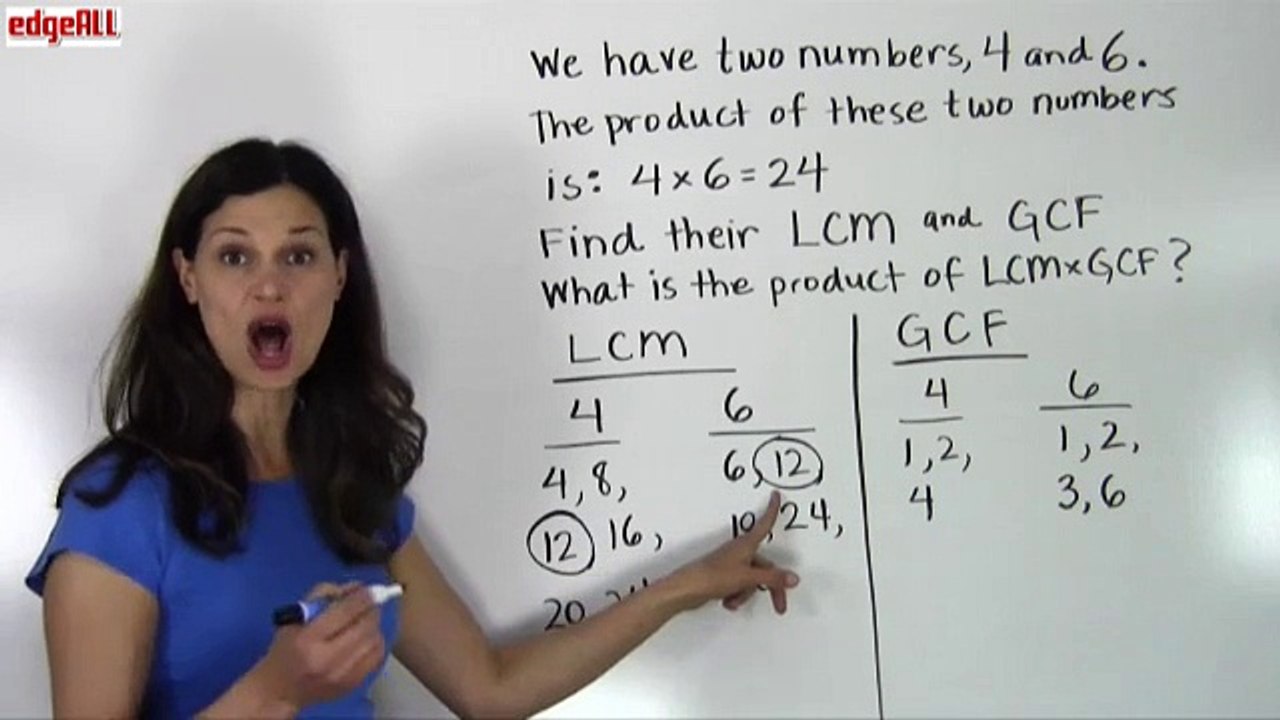 edgeALL
We have two numbers, 4 and 6.
The product of these two numbers
is: 4 × 6 = 24
Find their LCM and GCF
What is the product of LCM×GCF?
LCM
4 6
4, 8, 6, 12
12 16, 24,
20
GCF
4 6
1, 2, 1, 2,
4 3, 6